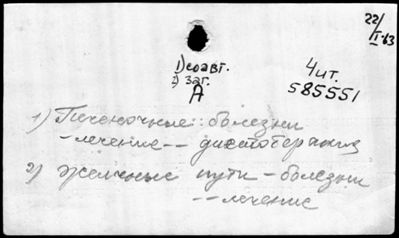 22/I-63
1) соавт.
2) Заг.
А
4 ит.
585551
1) Печеночные: болезни
-лечение -- диетотерапия
2) Желчные пути - болезни
-- лечение